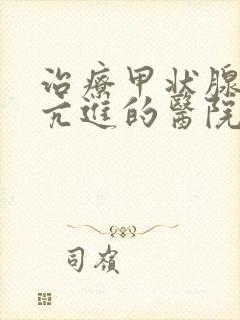 治療甲状腺
亢進的醫院
司嶺